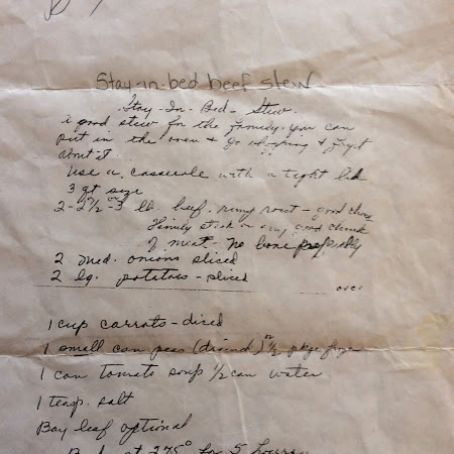 Stay-in-bed beef stew
Stay-In-Bed-Stew.
A good stew for the family-you can
put in the oven & go shopping & forget
about it.
Use a casserole with a tight lid
3 qt size
2-2½ or -3 lb beef. rump roast - good chuck
steak or any good chunk
of meat - no bone preferably
2 med. onions sliced
2 lg. potatoes - sliced
over
1 cup carrots - diced
1 small can peas (drained) or ½ pkge
1 can tomato soup ½ can water
1 teasp. salt
Bay leaf optional
Bake at 275° for 5 hours